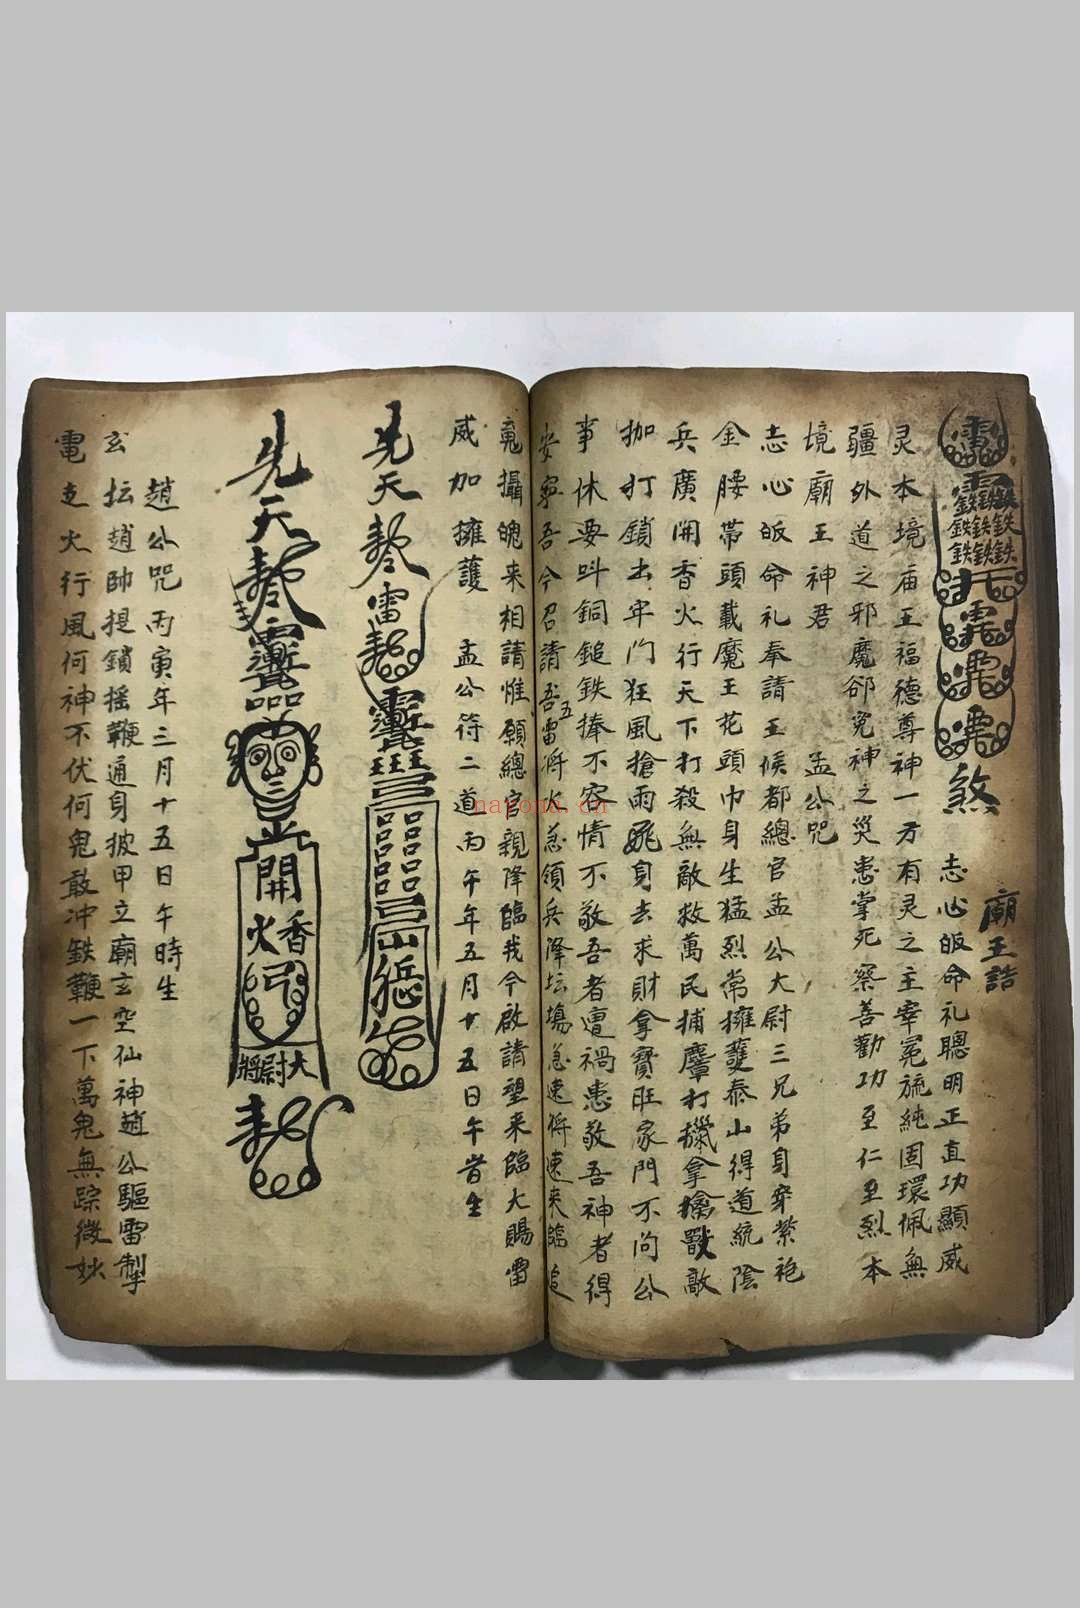 煞
廟王誥
志心皈命礼聰明正直功顯威
灵本境庙王福德尊神一方有灵之主宰冕旒純固環佩無
疆外道之邪魔部鬼神之災患掌死察善勸功至仁至烈本
境廟王神君
孟公咒
志心皈命礼奉請王候都總官孟公大尉三兄弟身穿紫袍
金腰帯頭載魔王花頭巾身生猛烈常擁護泰山得道統陰
兵廣開香火行天下打殺無敵救萬民捕麞打獵拿擒戰敵
枷打鎖出牢门狂風搶雨身去求財拿寶旺家門不问公
事休要叫銅鎚鉄捧不容情不敬吾者遭禍患敬吾神者得
安寧吾今召請吾五雷将火急領兵降坛塲急速将速来臨追
魂攝魄来相請惟願總官親降臨我今啟請望来臨大賜雷
威加擁護
孟公符二道丙午年五月十五日午时生
先天
雷
山
先天
開
香火
大尉將
趙公咒丙寅年三月十五日午時生
玄坛趙帥提鎖揺鞭通身披甲立廟玄空仙神趙公驅雷掣
電走火行風何神不伏何鬼敢冲鉄鞭一下萬鬼無踪微妙
nayona.cn